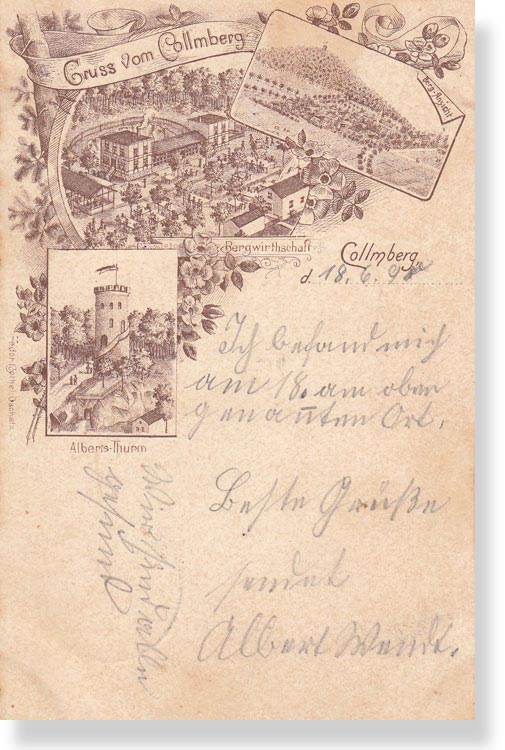 Gruss vom Collmberg
Berg-Ansicht
Bergwirthschaft
Collmberg,
d. 18. 6. 97
Alberts-Thurm
Ich befand mich
am 18. am oben
genannten Ort.
Beste Grüße
sendet
Albert Wendt.
Wir sind alle
gesund